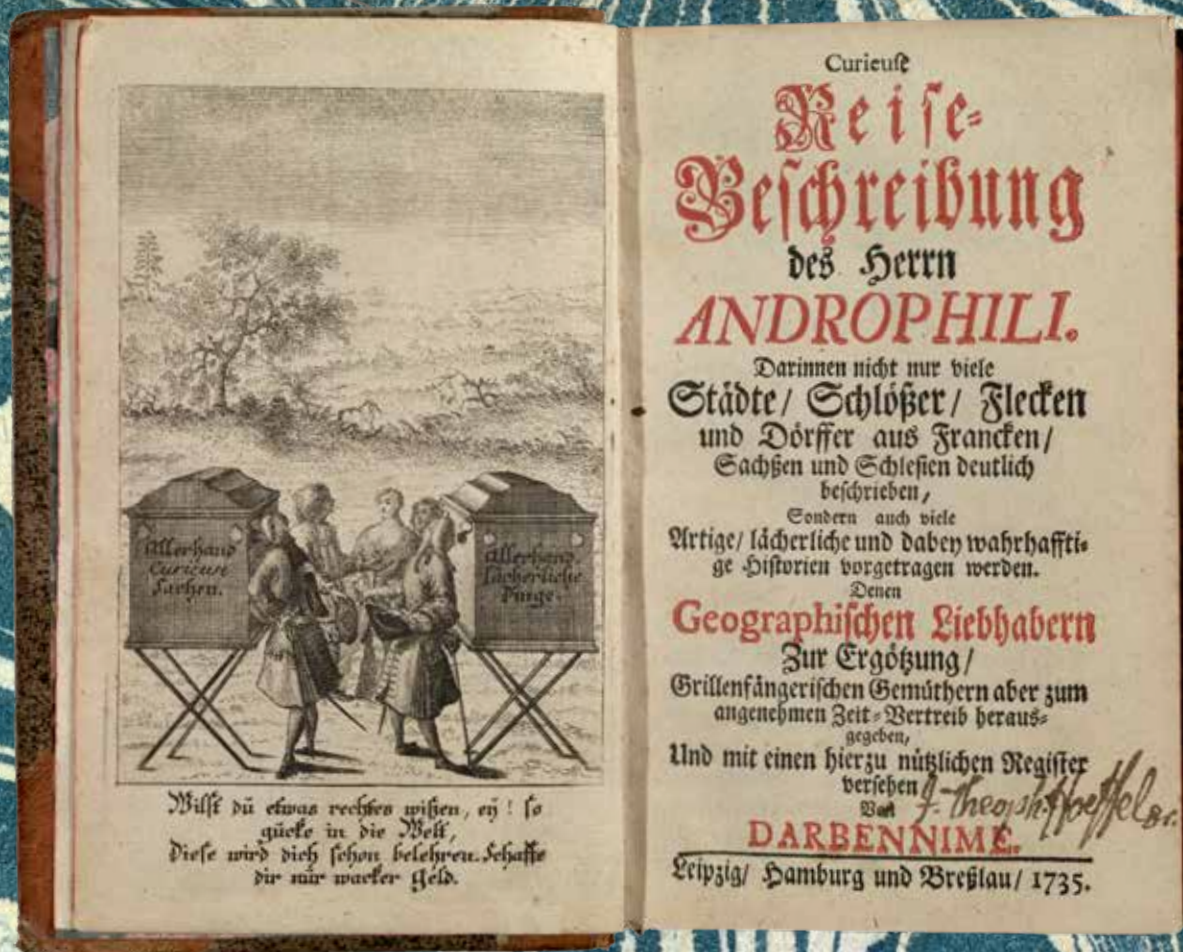 Allerhand
Curieuse
Sachen.
Allerhand
lächerliche
Dinge.
Wilst dú etwas rechtes wißen, eÿ! so
gúcke in die Welt,
Diese wird dich schon belehren. Schaffe
dir núr wacker Geld.
Curieuse
Reise-
Beschreibung
des Herrn
ANDROPHILI.
Darinnen nicht nur viele
Städte/ Schlößer/ Flecken
und Dörffer aus Francken/
Sachßen und Schlesien deutlich
beschrieben,
Sondern auch viele
Artige/ lächerliche und dabey wahrhaffti-
ge Historien vorgetragen werden.
Denen
Geographischen Liebhabern
Zur Ergötzung/
Grillenfängerischen Gemüthern aber zum
angenehmen Zeit-Vertreib heraus-
gegeben,
Und mit einen hierzu nützlichen Register
versehen
Von
DARBENNIME.
Leipzig/ Hamburg und Breßlau/ 1735.